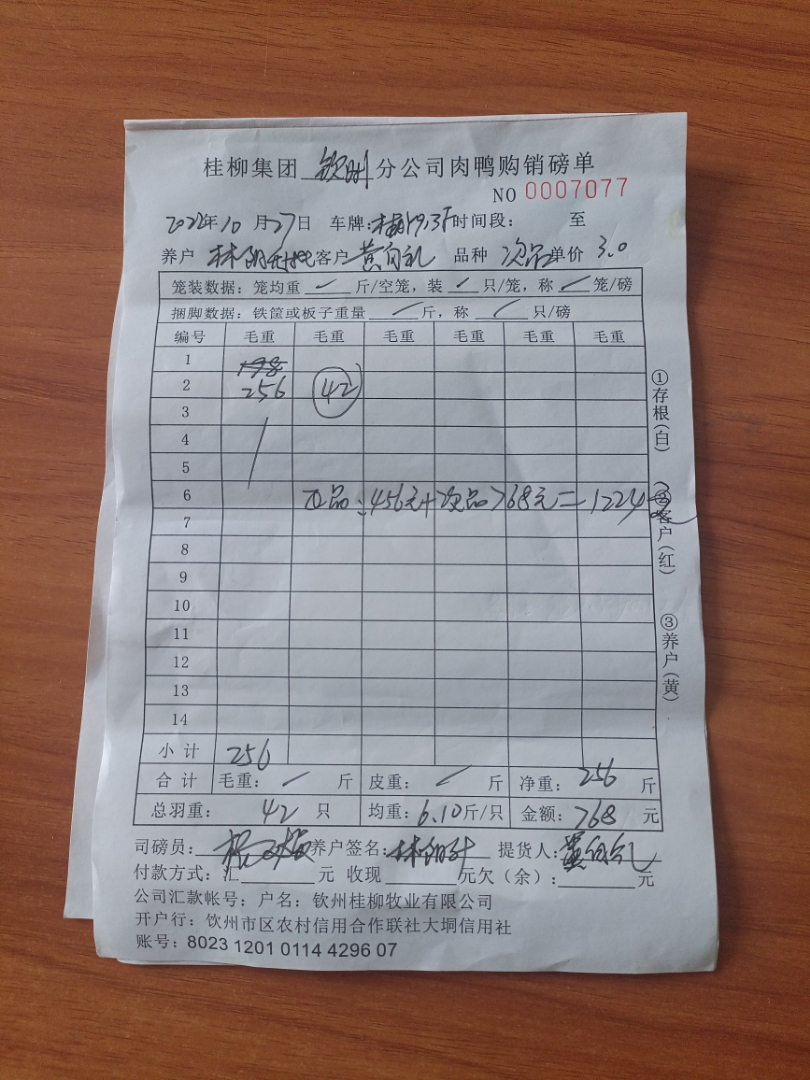 桂柳集团 钦州 分公司肉鸭购销磅单
NO 0007077
2022年10月27日 车牌: 时间段: 至
养户 林 客户 黄 品种 次品 单价 3.0
笼装数据: 笼均重 斤/空笼, 装 只/笼, 称 笼/磅
捆脚数据: 铁筐或板子重量 斤, 称 只/磅
编号 毛重 毛重 毛重 毛重 毛重 毛重
1 198
2 256 42
3
4
5
6 正品:456元+次品768元=1224
7
8
9
10
11
12
13
14
小计 256
合计 毛重: 斤 皮重: 斤 净重: 256 斤
总羽重: 42 只 均重: 6.10斤/只 金额: 768 元
司磅员: 养户签名: 林 提货人: 黄
付款方式: 汇 元 收现 元欠(余): 元
公司汇款帐号: 户名: 钦州桂柳牧业有限公司
开户行: 钦州市区农村信用合作联社大垌信用社
账号: 8023 1201 0114 4296 07
①存根(白)
②客户(红)
③养户(黄)